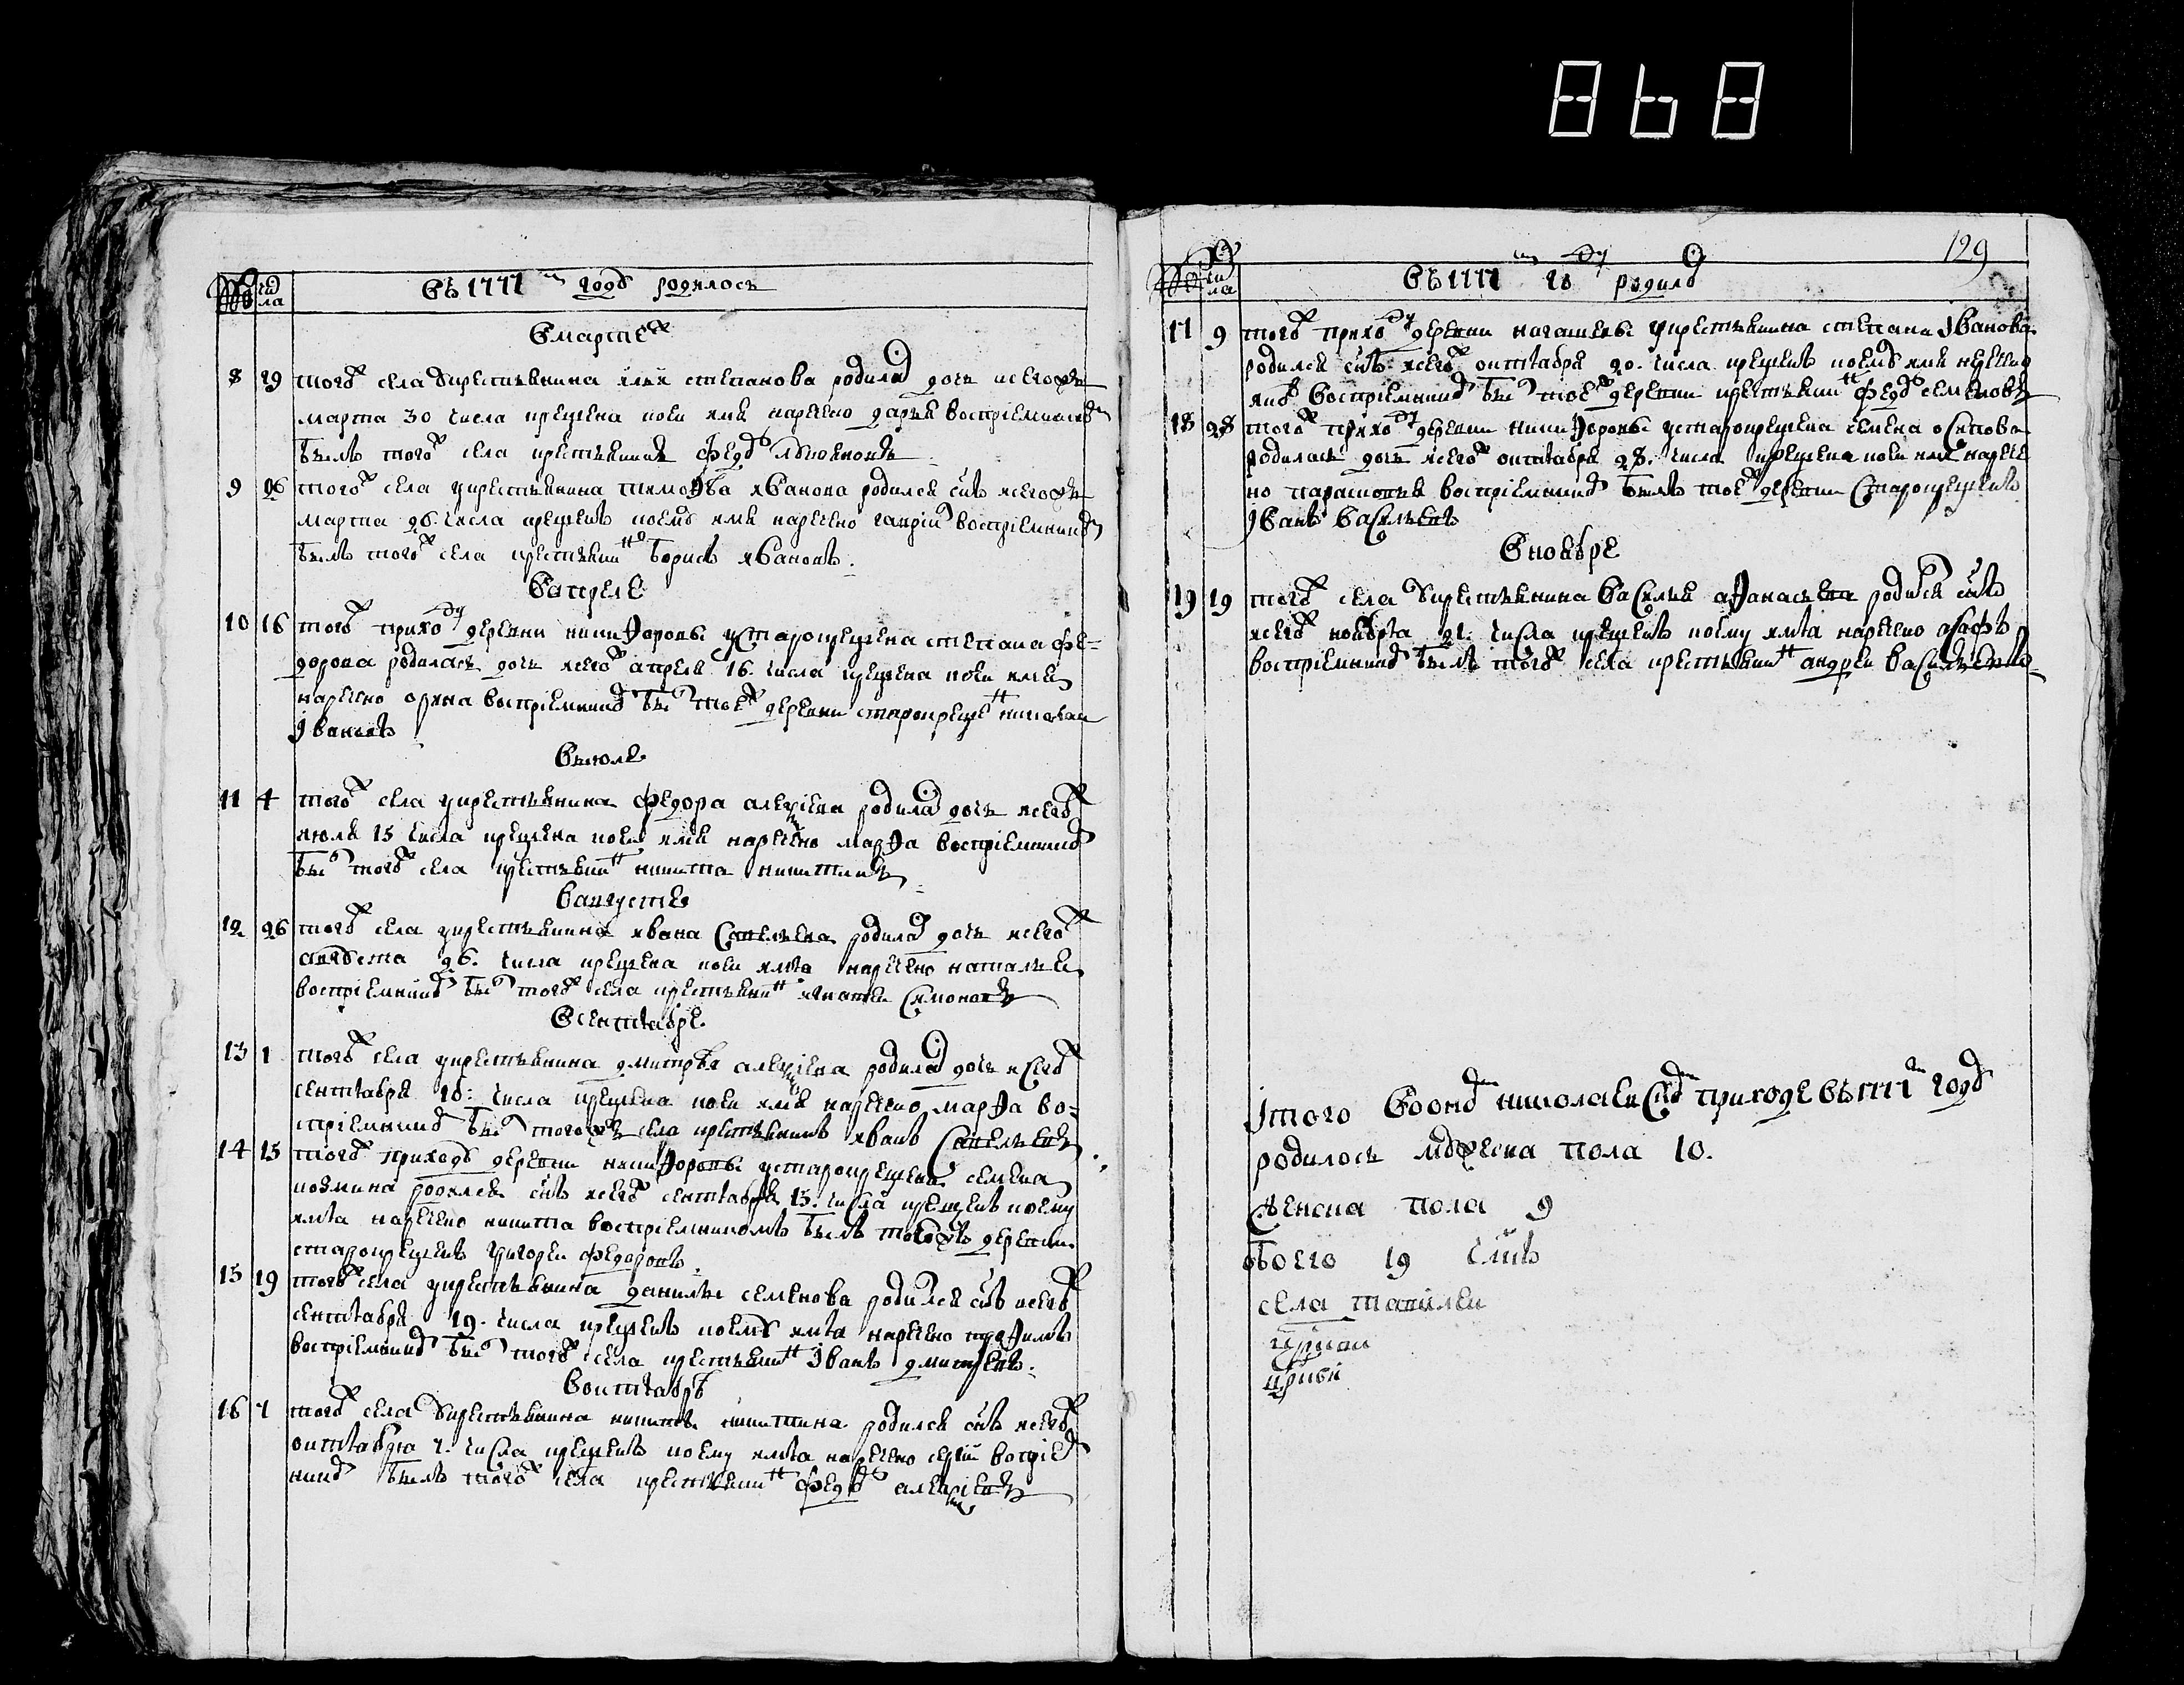 868
№№ чи сла
въ 1777 м году родилось
вмарте
8 29 тогож села укрестьянина ильи степанова родилас дочь исегожъ
марта 30 числа крещена коеи имя наречено дарья восприемником
былъ тогож села крестьянинъ федоръ
9 26 тогож села укрестьянина тимофѣа иванова родился сн҃ъ исегожъ
марта 26 числа крещенъ коему имя наречено гаврiил восприемником
былъ тогож села крестьянинъ борисъ ивановъ
вапреле
10 16 тогож приходу деревни никифоровы устарокрещена степана фе-
дорова родилась дочь исегож апреля 16 числа крещена коеи имя
наречено орина восприемником былъ тоеж деревни старокрещен николаи
iвановъ
виюле
11 4 тогож села укрестьянина федора алексiева родилас дочь исегож
июля 15 числа крещена коеи имя наречено марфа восприемником
былъ тогож села крестьянин никита никитинъ
вавгусте
12 26 тогож села укрестьянина ивана савельева родилас дочь исегож
августа 26 числа крещена коеи имѧ наречено наталья
восприемником былъ тогож села крестьянин игнатеи симоновъ
всентѧбре
13 1 тогож села укрестьянина дмитрѣя алексiева родилас дочь исегож
сентѧбря 10: числа крещена коеи имя наречено марфа во-
сприемником былъ тогожъ села крестьянинъ иванъ савельевъ
14 15 тогож приходу деревни никифоровы устарокрещена семена
козмина родился сн҃ъ исегож сентѧбря 15. числа крещенъ коему
имѧ наречено никита восприемникомъ былъ тоеяжъ деревни
старокрещенъ григореи федоровъ
15 19 тогож села укрестьянина данилы семенова родился сн҃ъ исегож
сентѧбря 19. числа крещенъ коему имѧ наречено трофимъ
восприемником былъ тогож села крестьянин iванъ дмитревъ.
воктѧбрѣ
16 7 тогож села укрестьянина никиты никитина родился сн҃ъ исегож
октѧбрѧ 7. числа крещенъ коему имѧ наречено сергiй восприем
ником былъ тогож села крестьянин федоръ алексiевъ
129
№№ чи сла
въ 1777 м году родилос
17 9 тогож приходу деревни укрестьянина степана iванова
родился сн҃ъ исегож октѧбря 20. числа крещенъ коему имя наречено
восприемником былъ тоеж деревни крестьянин федоръ семеновъ
18 28 тогож приходу деревни никифоровы устарокрещена семена осипова
родилась дочь исегож октѧбря 28. числа крещена коеи имя нарече
но парасковья восприемником былъ тоеж деревни старокрещенъ
iванъ васильевъ
вноябре
19 19 тогож села укрестьянина василья афанасьева родился сн҃ъ
исегож ноѧбрѧ 21. числа крещенъ коему имѧ наречено асафъ
восприемником былъ тогож села крестьянин андреи васильевъ
iтого вооном николаевском приходе въ 1777 м году
родилось мужеска пола 10.
женска пола 9
обоего 19 чл҃къ
села